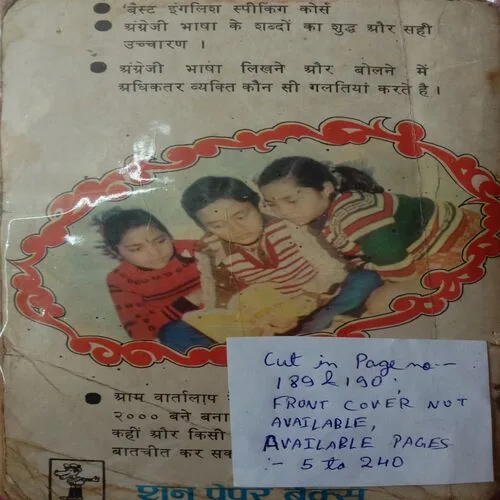 'बैस्ट इंगलिश स्पीकिंग कोर्स
अंग्रेजी भाषा के शब्दों का शुद्ध और सही
उच्चारण ।
अंग्रेजी भाषा लिखने और बोलने में
अधिकतर व्यक्ति कौन सी गलतियां करते है ।
Cut in Page no:-
189 & 190,
FRONT COVER NOT
AVAILABLE,
AVAILABLE PAGES
:- 5 to 240
आम वार्तालाप
२००० बने बना
कहीं और किसी
बातचीत कर सक
शन पेपर बक्स